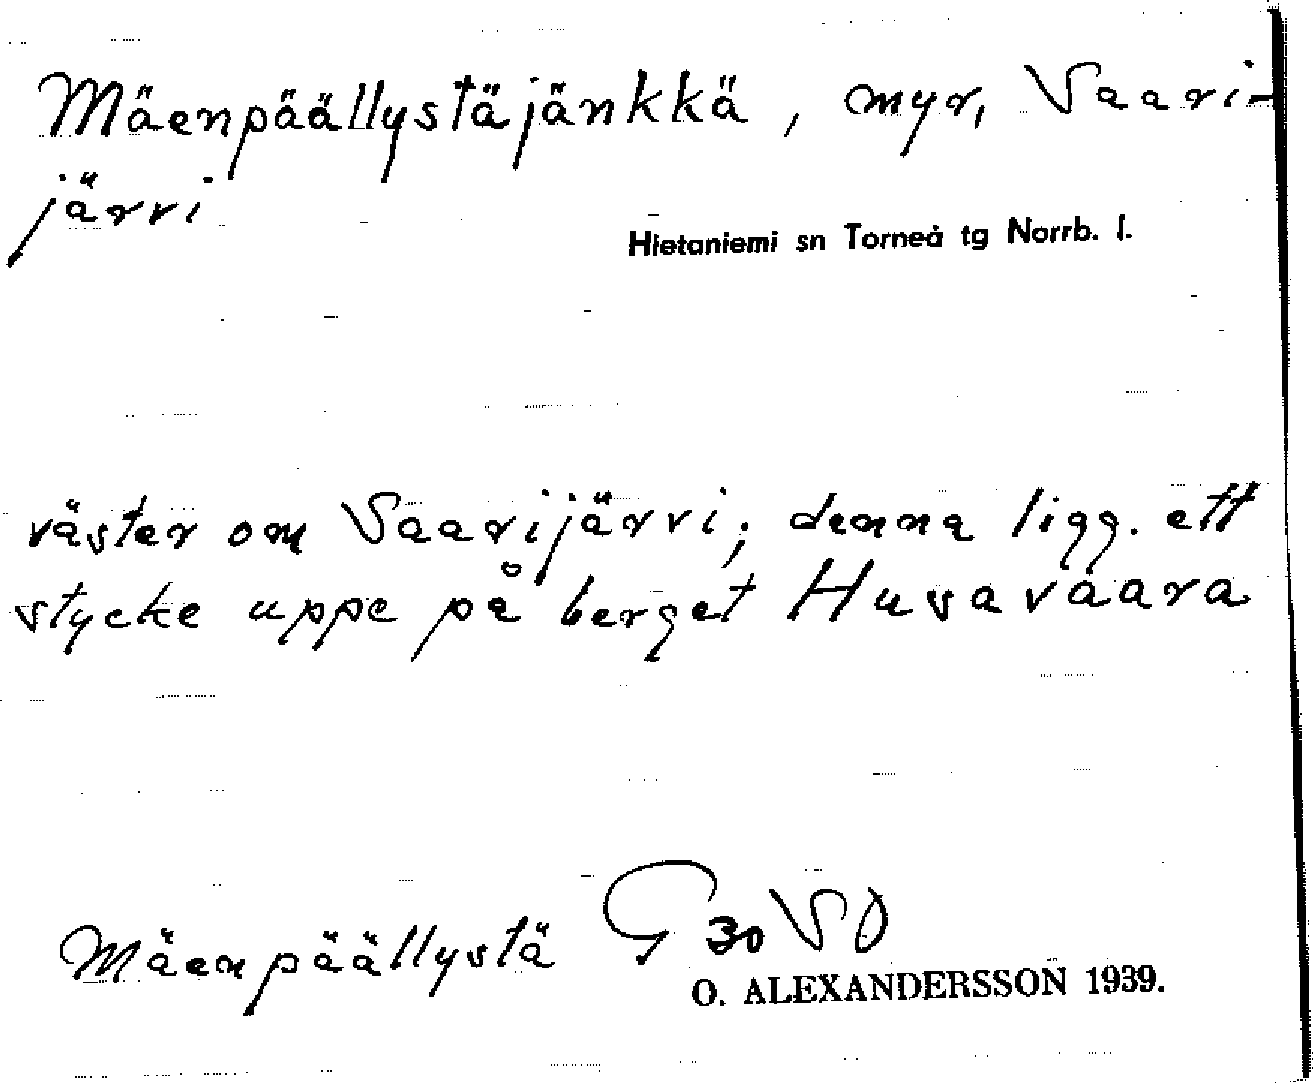 Mäenpäällystäjänkkä, myr, Vaari-
järvi
Hietaniemi sn Torneå tg Norrb. l.
väster om Vaarijärvi; denna ligg. ett
stycke uppe på berget Husavaara
Mäenpäällystä G 30 VO
O. ALEXANDERSSON 1939.